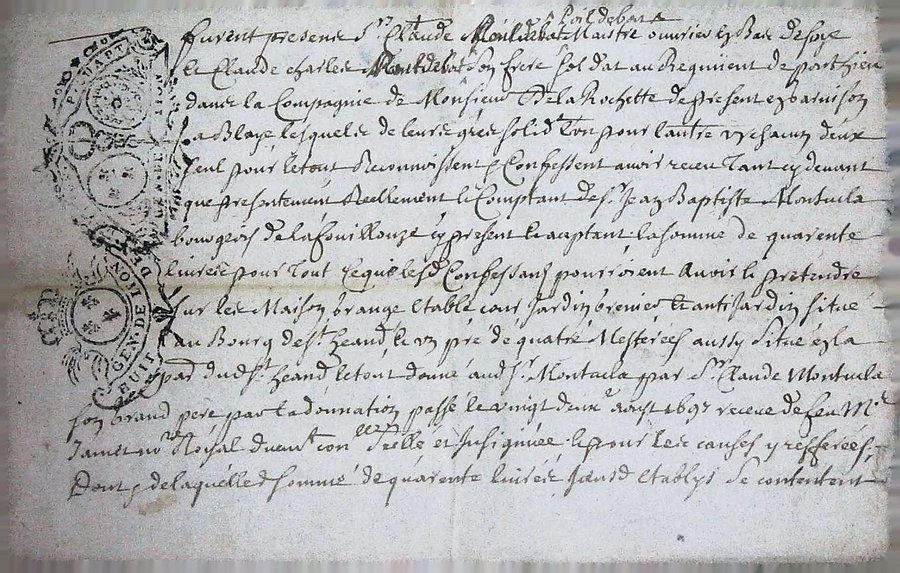 furent presens Sr. Claude Maistre ouvrier en Bas de soye
et Claude charles son frere soldat au Regiment de
dans la Compagnie de Monsieur De la Rochette de present en garnison
a Blaye lesquels de leurs grés solid. l'un pour l'autre un chacun deux
seul pour le tout Reconnoissent et Confessent avoir receu Tant cy devant
que presentement Reellement et Comptant de Sr. Jean Baptiste Montuela
bourgeois de la fouillouze cy present et acceptant la somme de quarente
livres pour Tout ce que lesd. Confessans pourroient avoir et pretendre
sur les Maison grange Etable cour Jardin grenier et Jardin situé
au Bourg de St. heand et un pré de quatre Mesterées aussy situé en la
par. dud. St. heand le tout donné aud. Sr. Montuela par Sr. Claude Montuela
son Grand pere par la donnation passé le vingt deux aoust 1697 receue de feu Me.
Royal et Insinuée et pour les causes y refferées,
De laquelle somme de quarente livres Etablys se contentent
GEN. DE MON
HUIT